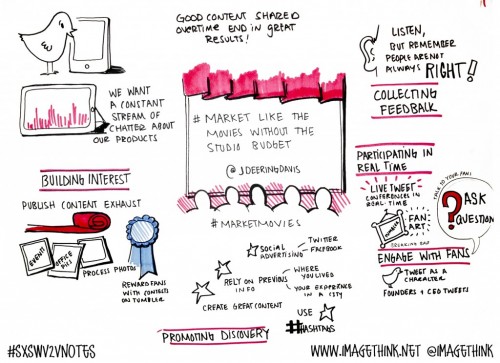 GOOD CONTENT SHARED
OVERTIME END IN GREAT
RESULTS!
LISTEN,
BUT REMEMBER
PEOPLE ARE NOT
ALWAYS RIGHT!
COLLECTING
FEEDBACK
WE WANT
A CONSTANT
STREAM OF
CHATTER ABOUT
OUR PRODUCTS
# MARKET LIKE THE
MOVIES WITHOUT THE
STUDIO BUDGET
@JDEERINGDAVIS
#MARKETMOVIES
BUILDING INTEREST
PUBLISH CONTENT EXHAUST
EVENTS
OFFICE
PICS
PROCESS PHOTOS
REWARD FANS
WITH CONTESTS
ON TUMBLER
SOCIAL
ADVERTISING
TWITTER
FACEBOOK
RELY ON PREVIOUS
INFO
WHERE
YOU LIVED
YOUR EXPERIENCE
IN A CITY
CREATE GREAT CONTENT
USE
#HASHTAGS
PROMOTING DISCOVERY
PARTICIPATING IN
REAL TIME
LIVE TWEET
CONFERENCES IN
REAL-TIME
FAN
ART
TALK TO YOUR FANS
? ASK
QUESTION
ENGAGE WITH FANS
TWEET AS A
CHARACTER
FOUNDERS + CEO TWEETS
#SXSWV2VNOTES
WWW.IMAGETHINK.NET @IMAGETHINK